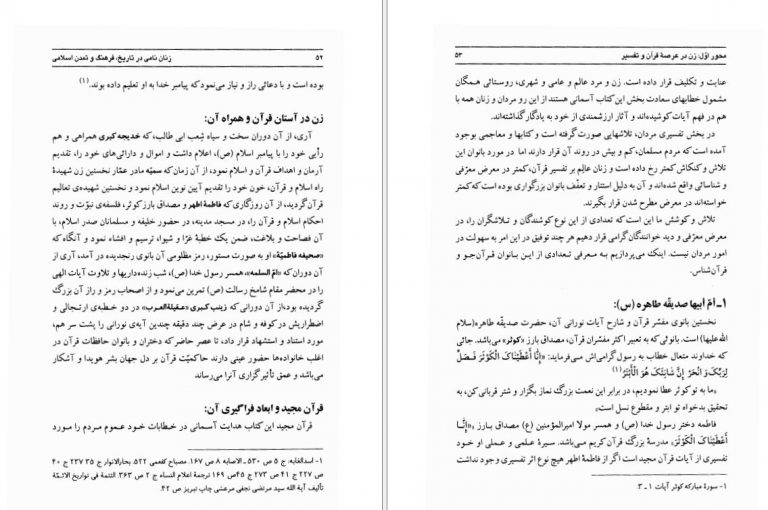 زنان نامی در تاریخ، فرهنگ و تمدن اسلامی ۵۲
بوده است و با دعائی راز و نیاز می‌نمود که پیامبر خدا به او تعلیم داده بوند. (۱)
زن در آستان قرآن و همراه آن:
آری، از آن دوران سخت و سیاه شعب ابی طالب، که خدیجه کبری همراهی و هم
رأیی خود را با پیامبر اسلام (ص)، اعلام داشت و اموال و دارائی‌های خود را، تقدیم
آرمان و اهداف قرآن و اسلام نمود، از آن زمان که سمیه مادر عمّار نخستین زن شهیدهٔ
راه اسلام و قرآن، خون خود را تقدیم آیین نوین اسلام نمود و نخستین شهیدهی تعالیم
قرآن گردید، از آن روزگاری که فاطمهٔ اطهر و مصداق بارز کوثر، فلسفه‌ی نبوّت و روند
احکام اسلام و قرآن را، در مسجد مدینه، در حضور خلیفه و مسلمانان صدر اسلام، با
آن فصاحت و بلاغت، ضمن یک خطبهٔ غرّا و شیوا، ترسیم و افشاء نمود و آنگاه که
«صحیفه فاطمیّه» او به صورت دستور، رمز مظلومی آن بانوی رنجدیده در آمد، آری از
آن دوران که «امّ السلمه»، همسر رسول خدا (ص)، شب زنده‌داریها و تلاوت آیات الهی
را در محضر مقام شامخ رسالت (ص) تمرین می‌نمود و از اصحاب رمز و راز آن بزرگ
گردیده بود، از آن دورانی که زینب کبری «عقیلة العرب» در دو خطبه‌ی ارتجالی و
اضطراریش در کوفه و شام در عرض چند دقیقه چندین آیه‌ی نورانی را پشت سر هم،
مورد استناد و استشهاد قرار داد، تا عصر حاضر که دختران و بانوان حافظات قرآن در
اغلب خانواده‌ها حضور عینی دارند حاکمیّت قرآن بر دل جهان بشر هویدا و آشکار
می‌باشد و عمق تأثیرگزاری آنرا می‌رساند
قرآن مجید و ابعاد فراگیری آن:
قرآن مجید این کتاب هدایت آسمانی در خطابات خود عموم مردم را مورد
۱- اسدالغابه، ج ۵ ص ۵۳۰ ـ الاصابه ۸ ص ۱۶۷. مصباح کفعمی ۵۲۲. بحارالانوار ج ۳۵ ۲۳۷ ج ۴۰
ص ۲۲۷ ج ۴۱ ص ۲۷۳ ج ۴۵ ص ۱۶۹ ترجمة اعلام النساء ج ۲ ص ۳۶۳. الثتمة فی تواریخ الائمّة
تألیف آیة الله سید مرتضی نجفی مرعشی چاپ تبریز ص ۴۲.
محور اوّل: زن در عرصهٔ قرآن و تفسیر ۵۳
عنایت و تکلیف قرار داده است. زن و مرد عالم و عامی و شهری، روستائی همگان
مشمول خطابهای سعادت بخش این کتاب آسمانی هستند از این رو مردان و زنان همه با
هم در فهم آیات کوشیده‌اند و آثار ارزشمندی از خود به یادگار گذاشته‌اند.
در بخش تفسیری مردان، تلاشهایی صورت گرفته است و کتابها و معاجمی بوجود
آمده است که مردم مسلمان، کم و بیش در روند آن قرار دارند اما در مورد بانوان این
تلاش و کنکاش کمتر رخ داده است و زنان عالِم بر تفسیر قرآن، کمتر در معرض معرّفی
و شناسائی واقع شده‌اند و آن به دلیل استتار و تعفّف بانوان بزرگواری بوده است که کمتر
خواسته‌اند در معرض مطرح شدن قرار بگیرند.
تلاش و کوشش ما این است که تعدادی از این نوع کوشندگان و تلاشگران را، در
معرض معرّفی و دید خوانندگان گرامی قرار دهیم هر چند توفیق در این امر به سهولت در
امور مردان نیست. اینک می‌پردازیم به معرفی تعدادی از این بانوان قرآن‌جو و
قرآن‌شناس.
۱ـ امّ ابیها صدیقّه طاهره (س):
نخستین بانوی مفسّر قرآن و شارح آیات نورانی آن، حضرت صدیقّه طاهره (سلام
الله علیها) است. بانوئی که به تعبیر اکثر مفسّران قرآن، مصداق بارز «کوثر» می‌باشد. جائی
که خداوند متعال خطاب به رسول گرامی‌اش می‌فرماید: «إِنَّا أَعْطَیْنَاكَ الْکَوْثَرَ فَصَلِّ
لِرَبِّكَ وَ انْحَرْ إِنَّ شَانِئَكَ هُوَ الْأَبْتَرُ» (۱)
«ما به تو کوثر عطا نمودیم، در برابر این نعمت بزرگ نماز بگزار و شتر قربانی کن، به
تحقیق بدخواه تو ابتر و مقطوع نسل است»
فاطمه دختر رسول خدا (ص) و همسر مولا امیرالمؤمنین (ع) مصداق بارز، «إِنَّا
أَعْطَیْنَاكَ الْکَوْثَرَ» مدرسهٔ بزرگ قرآن کریم می‌باشد. سیرهٔ علمی و عملی او خود
تفسیری از آیات قرآن مجید است اگر از فاطمهٔ اطهر هیچ نوع اثر تفسیری وجود نداشت
۱- سورهٔ مبارکه کوثر آیات ۱ ـ ۳.